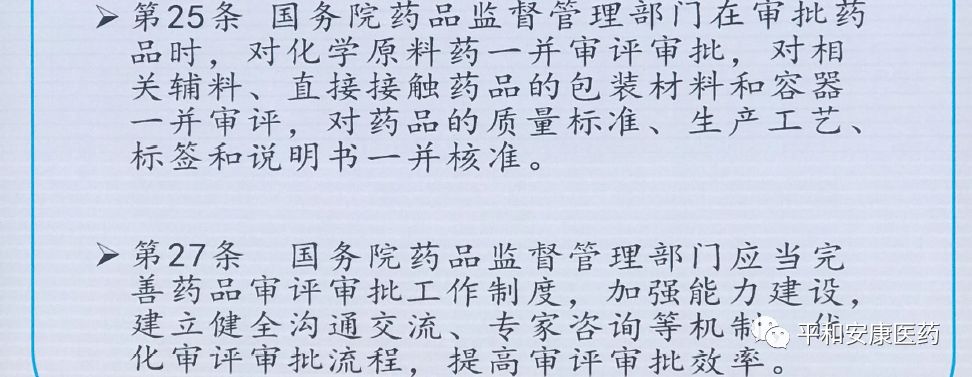 ➢ 第25条 国务院药品监督管理部门在审批药
品时，对化学原料药一并审评审批，对相
关辅料、直接接触药品的包装材料和容器
一并审评，对药品的质量标准、生产工艺、
标签和说明书一并核准。
➢ 第27条 国务院药品监督管理部门应当完
善药品审评审批工作制度，加强能力建设，
建立健全沟通交流、专家咨询等机制，优
化审评审批流程，提高审评审批效率。
平和安康医药